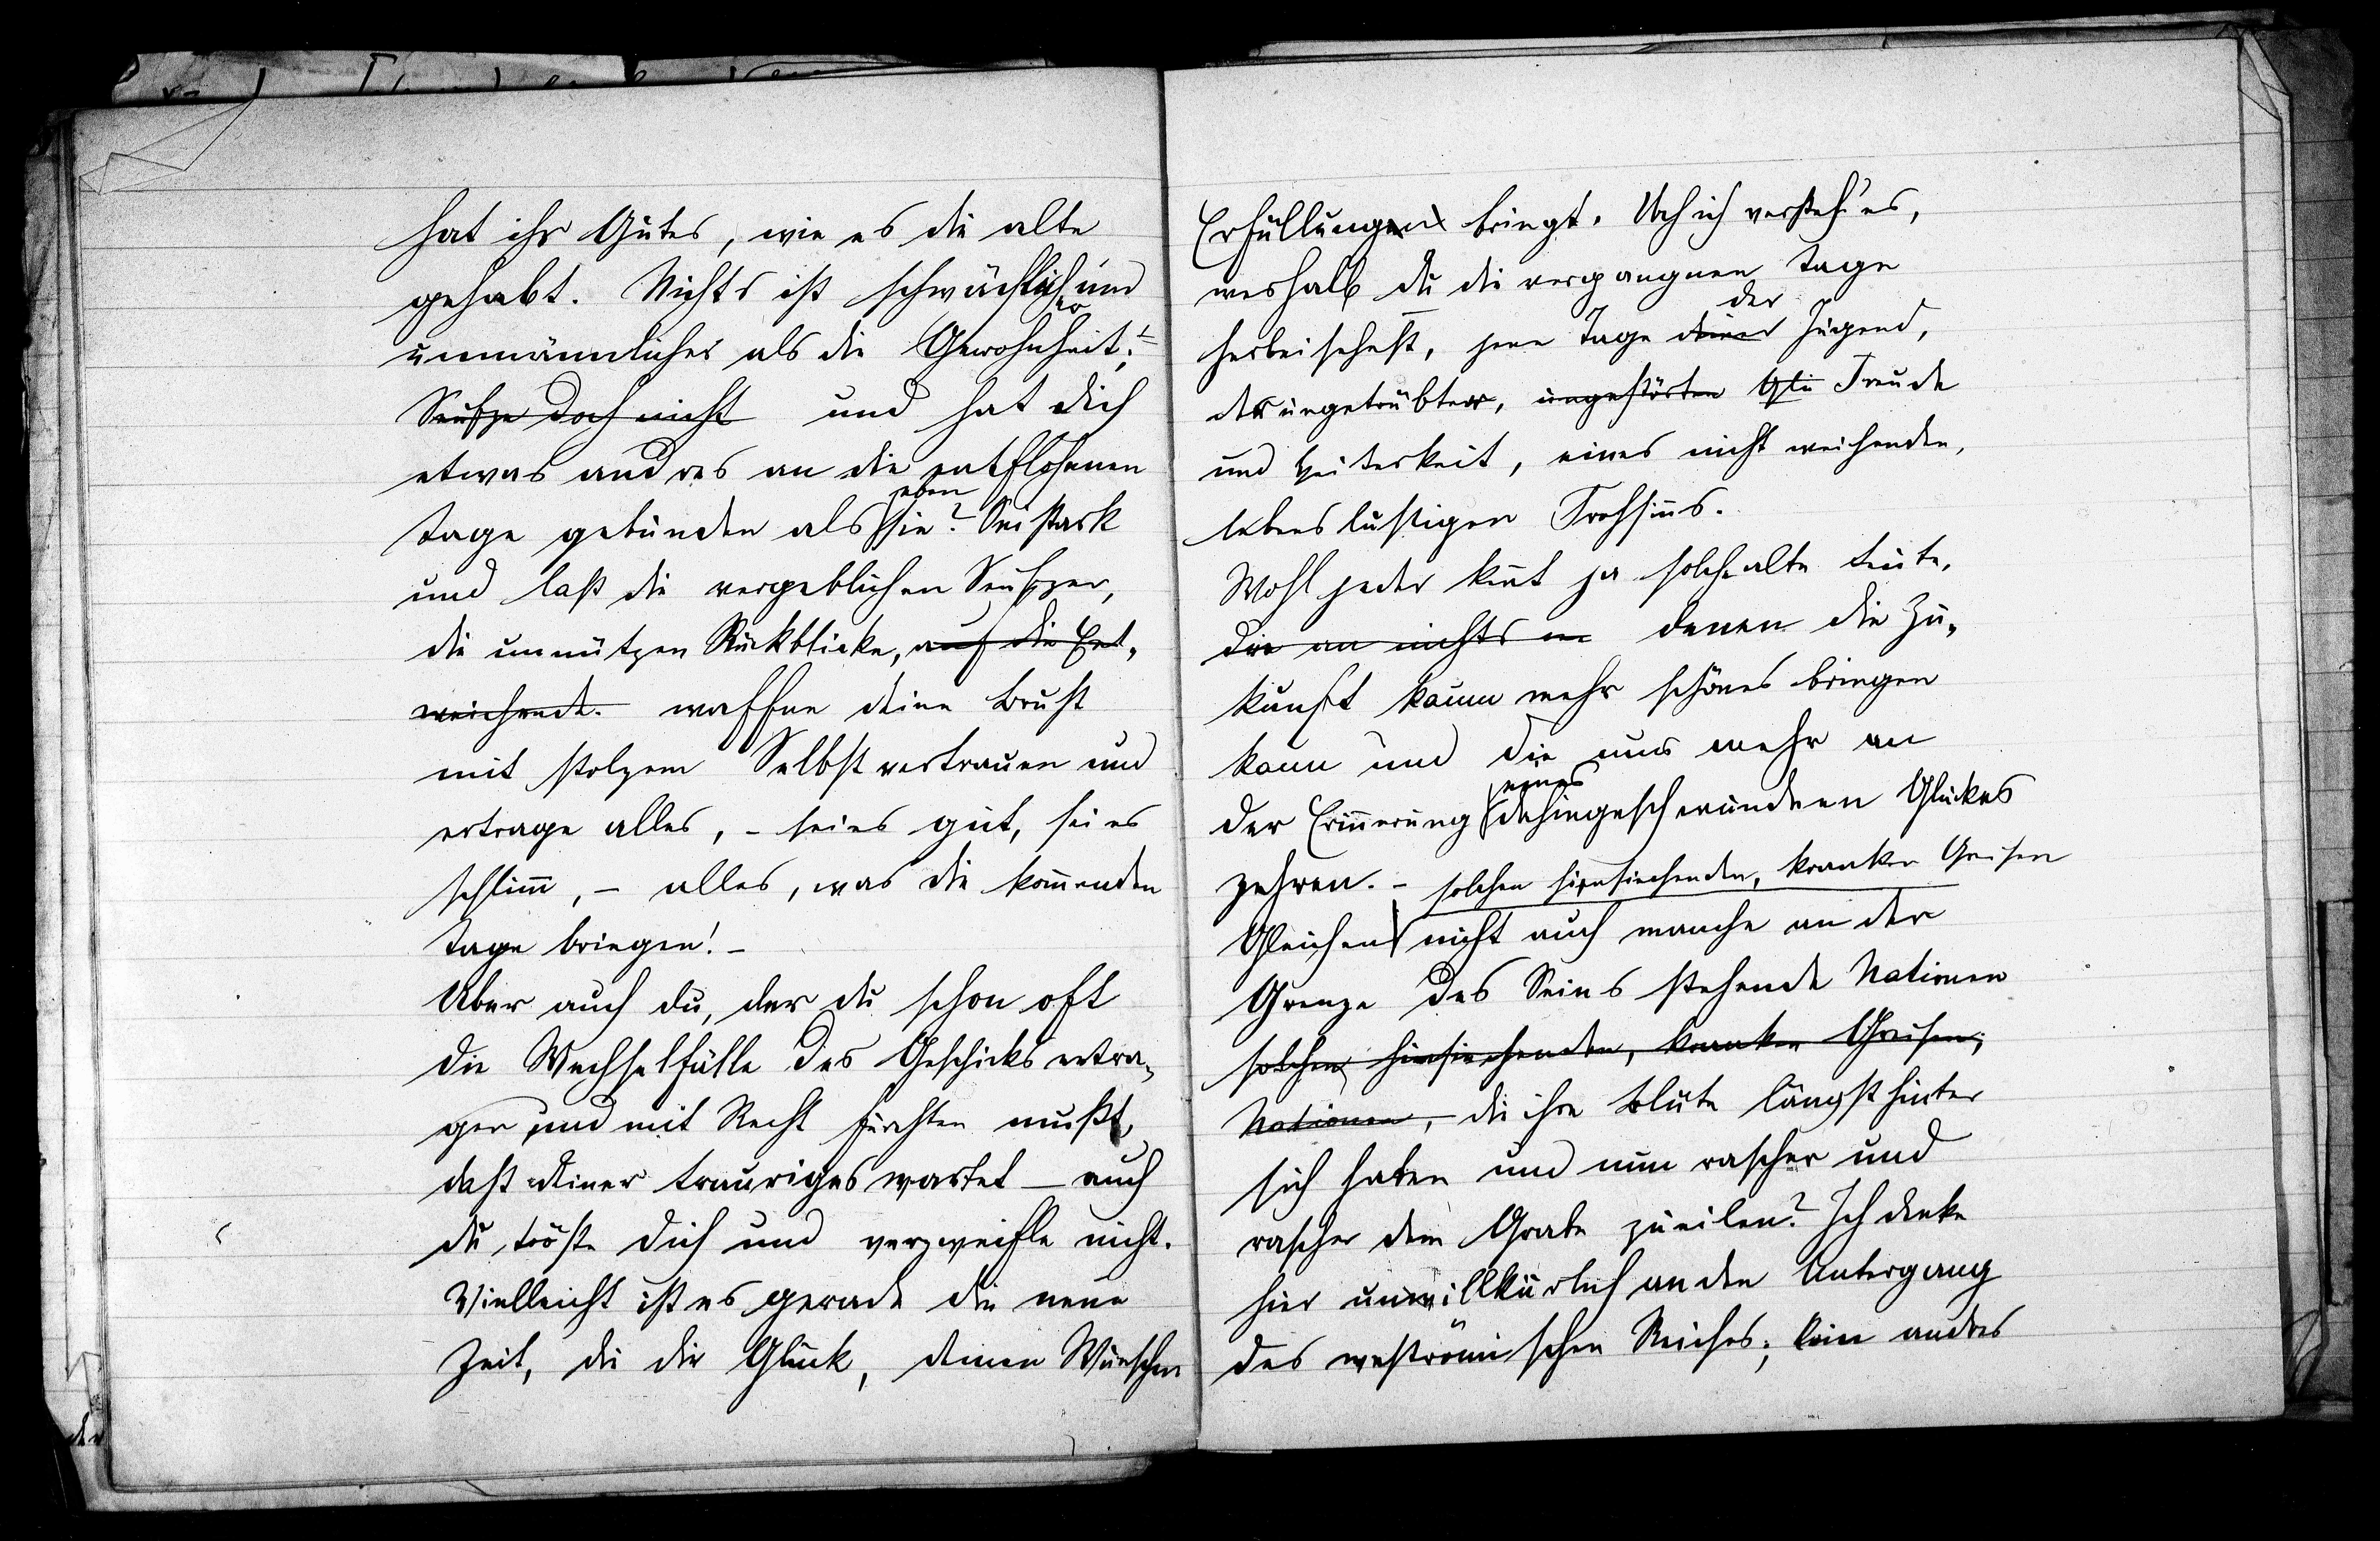 hat ihr Gutes, wie es die alte
gehabt. Nichts ist schwächlich er und
unmännlicher als die Gewohnheit; –
Seufze doch nicht und hat dich
etwas andres an die entflohenen
eben
Tage gebunden als sie? Sei stark
und laß die vergeblichen Seufzer,
die unnützen Rückblicke, auf die Ent-
weichende. waffne deine Brust
mit stolzem Selbstvertrauen und
ertrage alles, – sei es gut, sei es
schlim̅, – alles, was die kom̅enden
Tage bringen! –
Aber auch du, der du schon oft
die Wechselfälle des Geschicks ertra-
gen und mit Recht fürchten mußt,
daß deiner trauriges wartet – auch
du tröste dich und verzweifle nicht.
Vielleicht ist es gerade die neue
Zeit, die dir Glück, deinen Wünschen
Erfüllungen bringt. Ach ich versteh' es,
weshalb du die vergangnen Tage
der
herbeisehnst, jene Tage deiner Jugend,
der ungetrübten, ungestörten Freude
und Heiterkeit, eines nicht weichenden,
lebenslustigen Frohsin̅s.
Wohl jeder ken̅t ja solche alte Leute,
die an nichts denen die Zu-
kunft kaum mehr schönes bringen
kann und die nur mehr an
eines
der Erin̅erung dahingeschwundnen Glückes
zehren. – solchen hinsiechenden, kranken Greisen
Gleichen nicht auch manche an der
Grenze des Seins stehende Nationen
solchen hinsiechenden, kranken Greisen;
Nationen, die ihre Blüte längst hinter
sich haben und nun rascher und
rascher dem Grabe zueilen? Ich denke
hier unwillkürlich an den Untergang
des weströmischen Reiches; kein andres